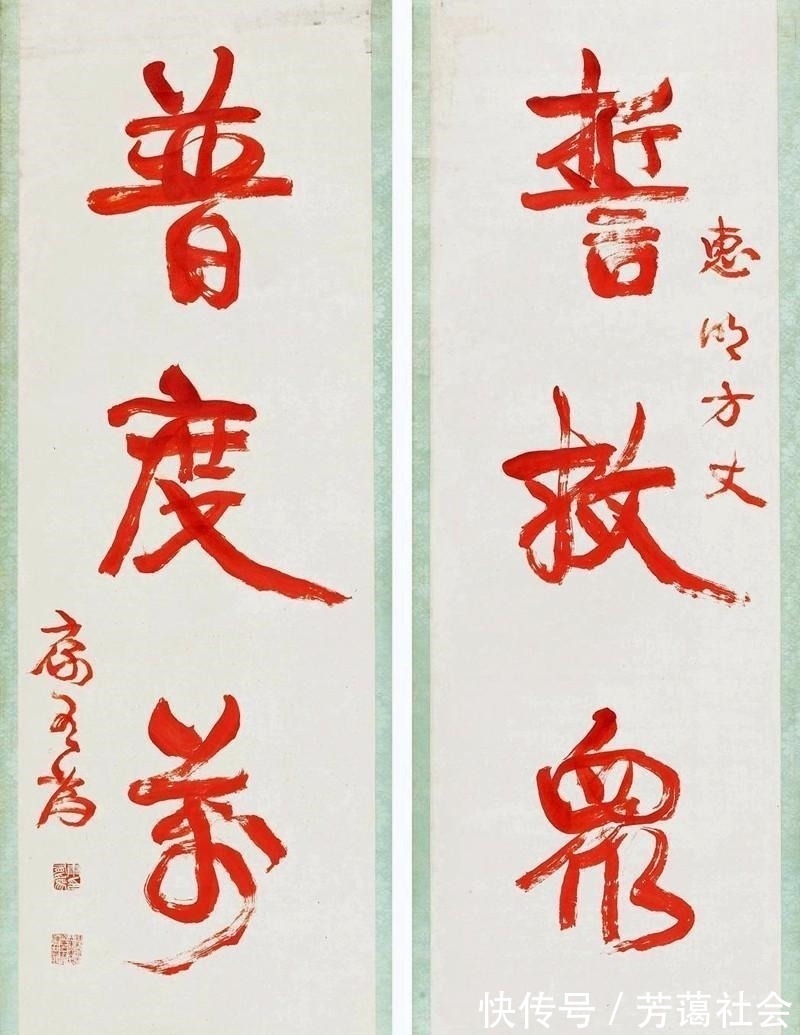 惠明方丈
誓救眾
普度萬
康有為
快传号 / 芳蔼社会